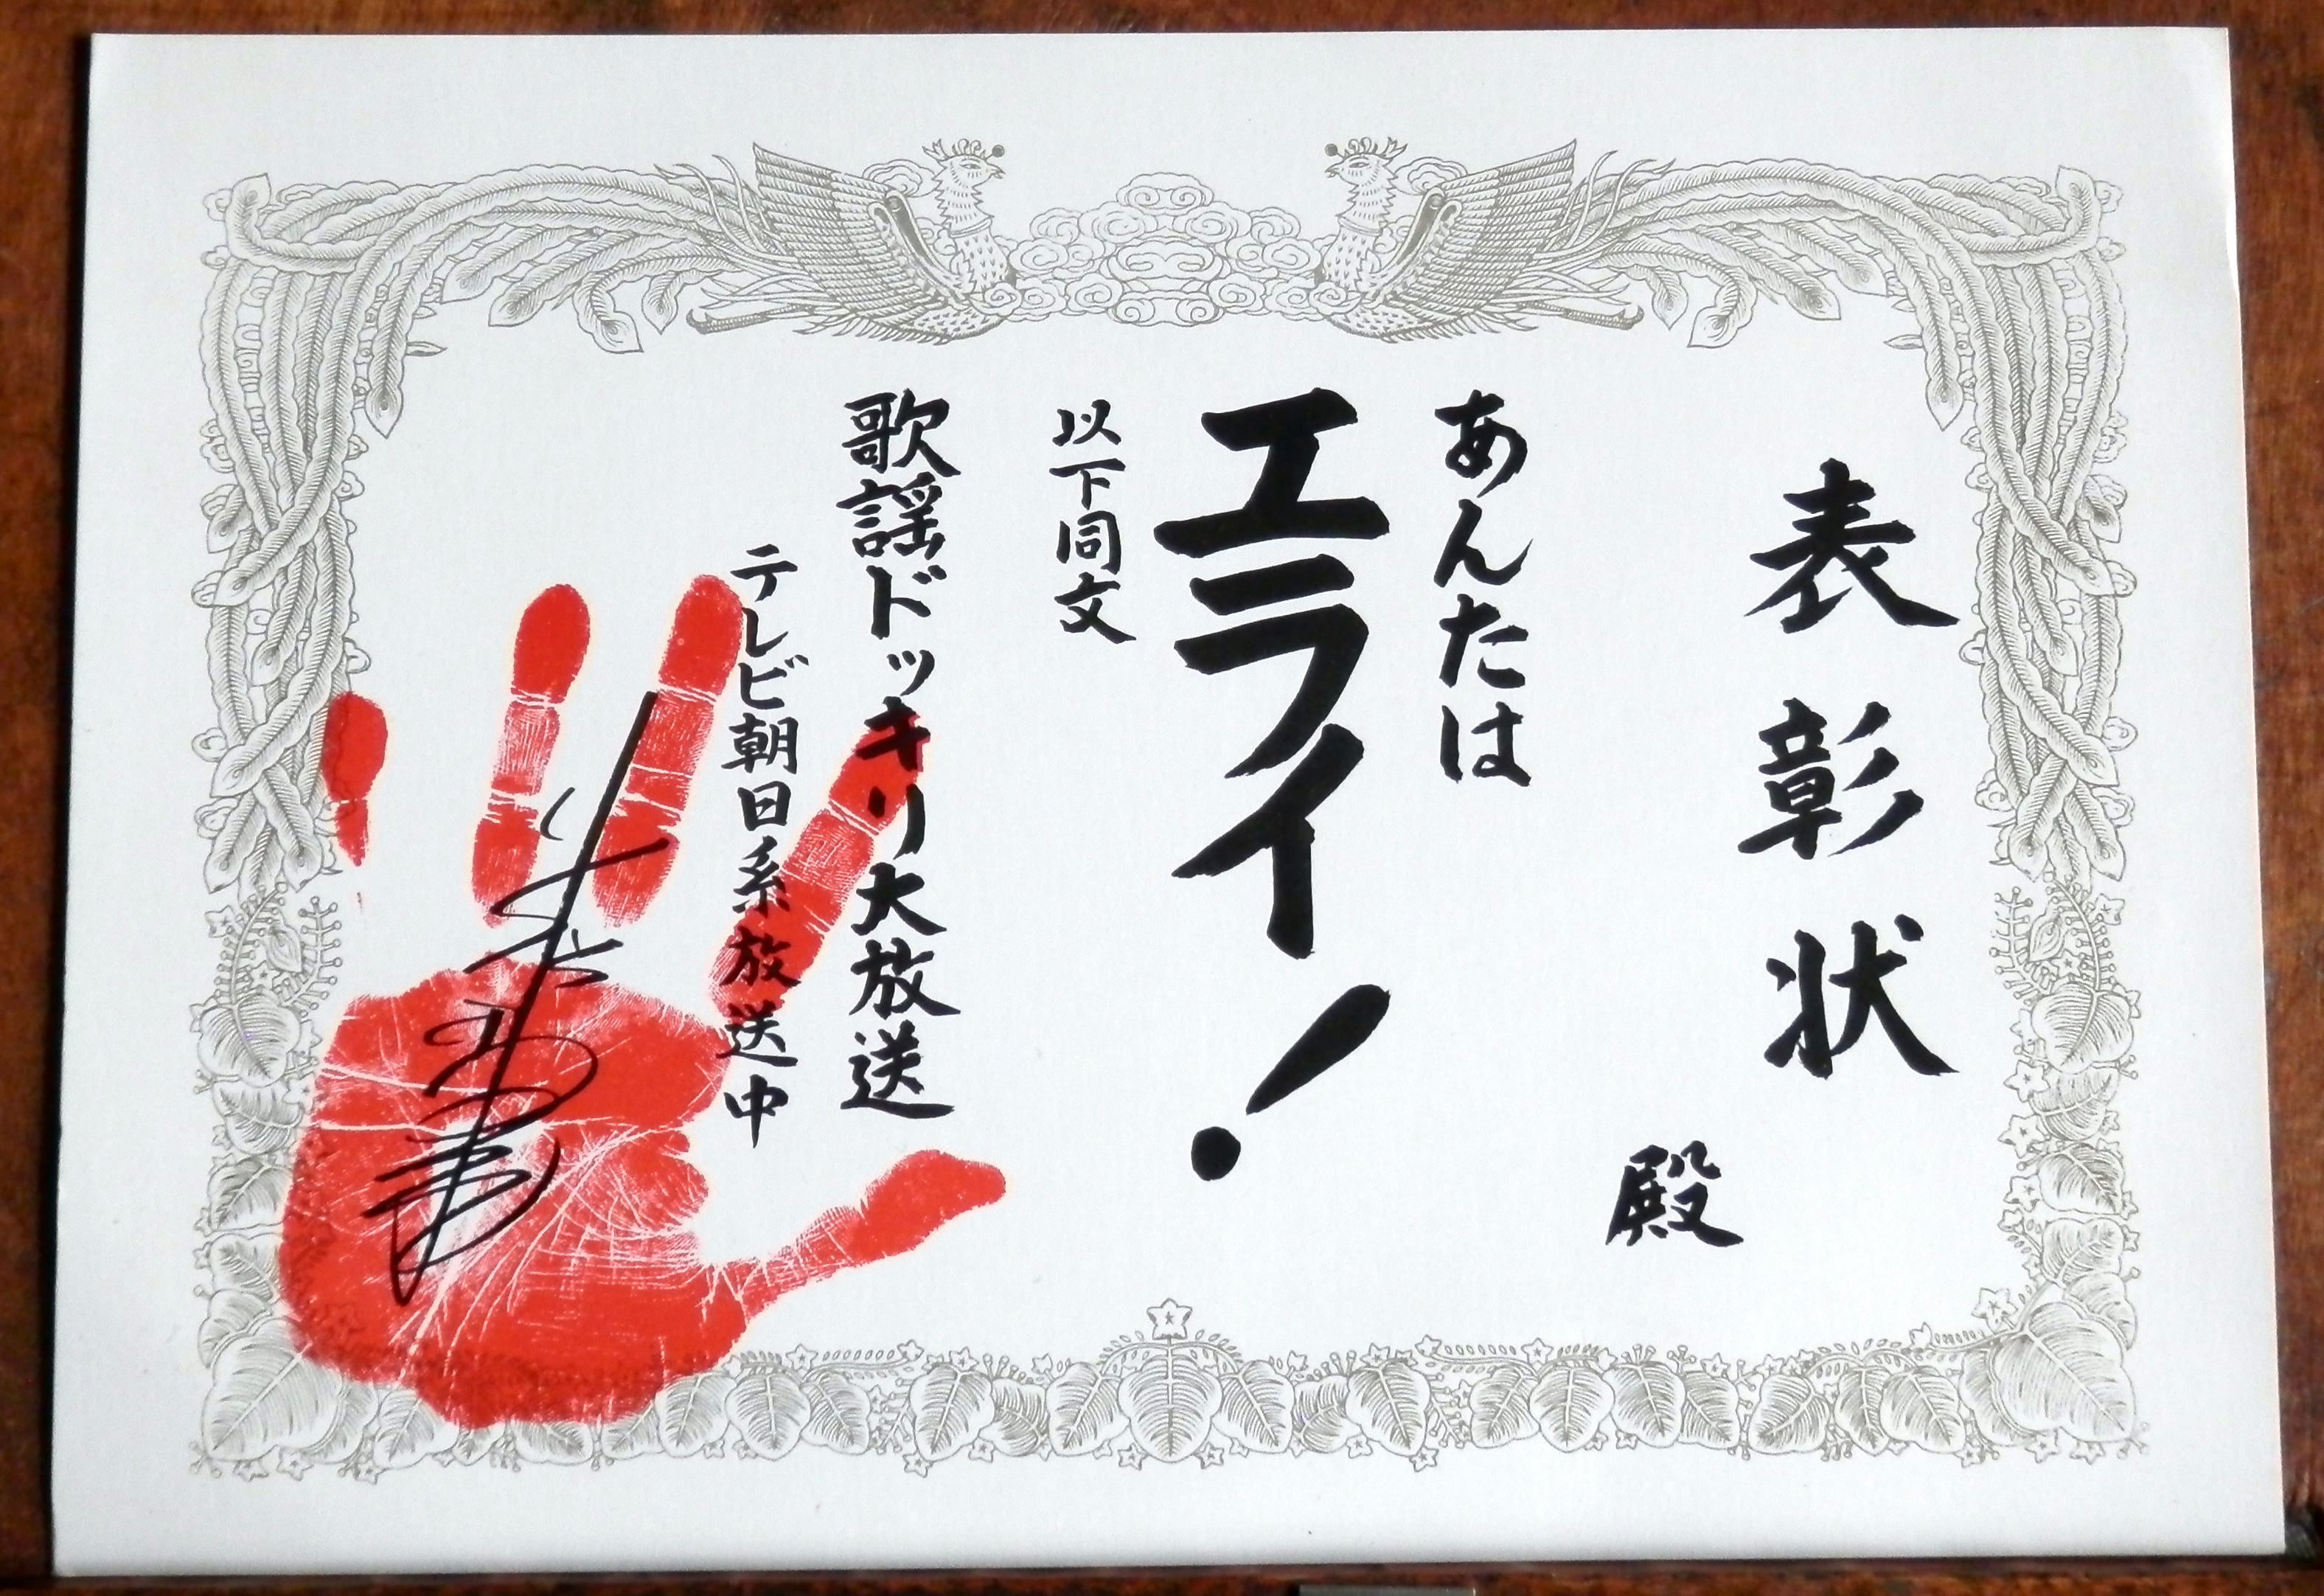 表彰状
殿
あんたは
エライ！
以下同文
歌謡ドッキリ大放送
テレビ朝日系放送中